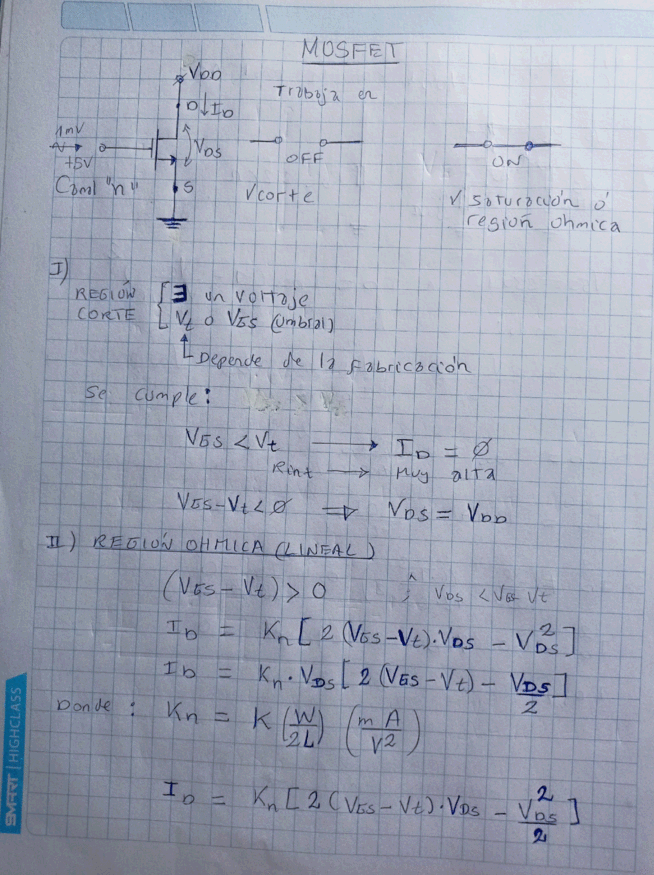 MOSFET
VDD
Trabaja en
D ↓ ID
1mV
+5V
VDS
OFF
ON
Canal "n"
S
Vcorte
V saturación ó
región ohmica
I)
REGIÓN CORTE [ ∃ un voltaje
Vt o VGS (umbral)
Depende de la fabricación
Se cumple:
VGS < Vt → ID = Ø
Rint → Muy alta
VGS - Vt < Ø ⇒ VDS = VDD
II) REGIÓN OHMICA (LINEAL)
(VGS - Vt) > 0 ; VDS < VGS Vt
ID = Kn [ 2 (VGS - Vt)·VDS - VDS² ]
ID = Kn · VDS [ 2 (VGS - Vt) - VDS/2 ]
Donde : Kn = K (W/2L) (mA/V2)
ID = Kn [ 2 (VGS - Vt)·VDS - VDS²/2 ]
SMART | HIGHCLASS